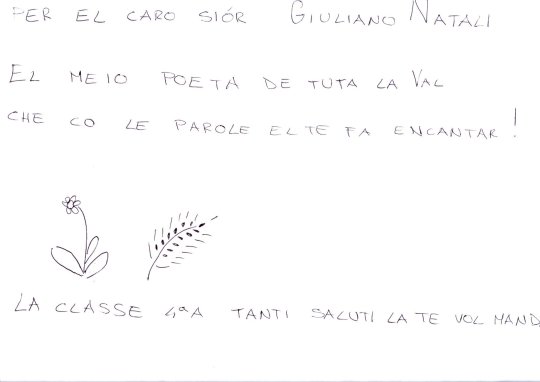 PER EL CARO SIÓR GIULIANO NATALI
EL MEIO POETA DE TUTA LA VAL
CHE CO LE PAROLE EL TE FA ENCANTAR!
LA CLASSE 4ªA TANTI SALUTI LA TE VOL MAND